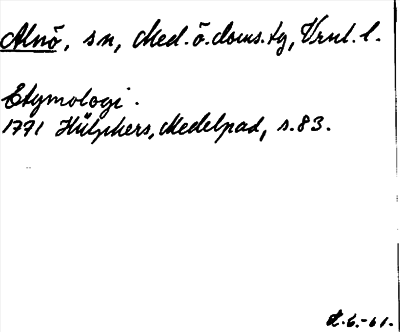 Alnö, sn, Med. ö. doms. tg, Vrnl. l.
Etymologi.
1771 Hülphers, Medelpad, s. 83.
H.G.-61.